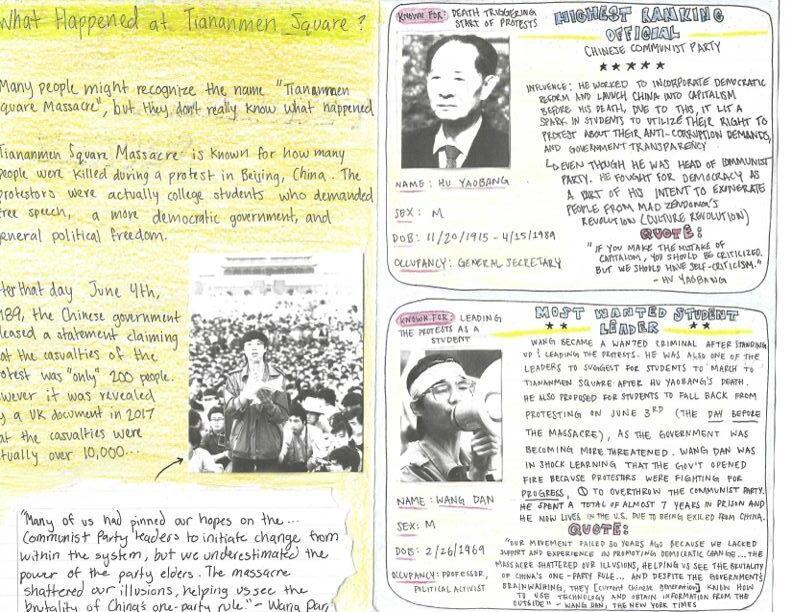 What Happened at Tiananmen Square?
Many people might recognize the name "Tiananmen
Square Massacre", but they don't really know what happened
Tiananmen Square Massacre is known for how many
people were killed during a protest in Beijing, China. The
protestors were actually college students who demanded
free speech, a more democratic government, and
general political freedom.
After that day June 4th,
1989, the Chinese government
released a statement claiming
that the casualties of the
protest was "only" 200 people.
However it was revealed
by a UK document in 2017
that the casualties were
actually over 10,000...
"Many of us had pinned our hopes on the...
Communist Party leaders to initiate change from
within the system, but we underestimated the
power of the party elders. The massacre
shattered our illusions, helping us see the
brutality of China's one-party rule" - Wang Dan
KNOWN FOR: DEATH TRIGGERING
START OF PROTESTS
NAME: HU YAOBANG
SEX: M
DOB: 11/20/1915 - 4/15/1989
OCCUPANCY: GENERAL SECRETARY
HIGHEST RANKING
OFFICIAL
CHINESE COMMUNIST PARTY
INFLUENCE: HE WORKED TO INCORPORATE DEMOCRATIC
REFORM AND LAUNCH CHINA INTO CAPITALISM
BEFORE HIS DEATH. DUE TO THIS, IT LIT A
SPARK IN STUDENTS TO UTILIZE THEIR RIGHT TO
PROTEST ABOUT THEIR ANTI-CORRUPTION DEMANDS,
AND GOVERNMENT TRANSPARENCY
EVEN THOUGH HE WAS HEAD OF COMMUNIST
PARTY. HE FOUGHT FOR DEMOCRACY AS
A PART OF HIS INTENT TO EXONERATE
PEOPLE FROM MAO ZENDONG'S
REVOLUTION (CULTURE REVOLUTION)
QUOTE:
"IF YOU MAKE THE MISTAKE OF
CAPITALISM, YOU SHOULD BE CRITICIZED.
BUT WE SHOULD HAVE SELF-CRITICISM."
- HU YAOBANG
KNOWN FOR: LEADING
THE PROTESTS AS A
STUDENT
NAME: WANG DAN
SEX: M
DOB: 2/26/1969
OCCUPANCY: PROFESSOR,
POLITICAL ACTIVIST
MOST WANTED STUDENT
LEADER
WANG BECAME A WANTED CRIMINAL AFTER STANDING
UP & LEADING THE PROTESTS. HE WAS ALSO ONE OF THE
LEADERS TO SUGGEST FOR STUDENTS TO MARCH TO
TIANANMEN SQUARE AFTER HU YAOBANG'S DEATH.
HE ALSO PROPOSED FOR STUDENTS TO FALL BACK FROM
PROTESTING ON JUNE 3RD (THE DAY BEFORE
THE MASSACRE), AS THE GOVERNMENT WAS
BECOMING MORE THREATENED. WANG DAN WAS
IN SHOCK LEARNING THAT THE GOV'T OPENED
FIRE BECAUSE PROTESTERS WERE FIGHTING FOR
PROGRESS, TO OVERTHROW THE COMMUNIST PARTY.
HE SPENT A TOTAL OF ALMOST 7 YEARS IN PRISON AND
HE NOW LIVES IN THE U.S. DUE TO BEING EXILED FROM CHINA.
QUOTE:
"OUR MOVEMENT FAILED 30 YEARS AGO BECAUSE WE LACKED
SUPPORT AND EXPERIENCE IN PROMOTING DEMOCRATIC CHANGE... THE
MASSACRE SHATTERED OUR ILLUSIONS, HELPING US SEE THE BRUTALITY
OF CHINA'S ONE-PARTY RULE... AND DESPITE THE GOVERNMENT'S
BRAINWASHING, THEY [current Chinese generation] KNOW HOW
TO USE TECHNOLOGY AND OBTAIN INFORMATION FROM THE
OUTSIDE" - WANG DAN, THE NEW YORK TIMES